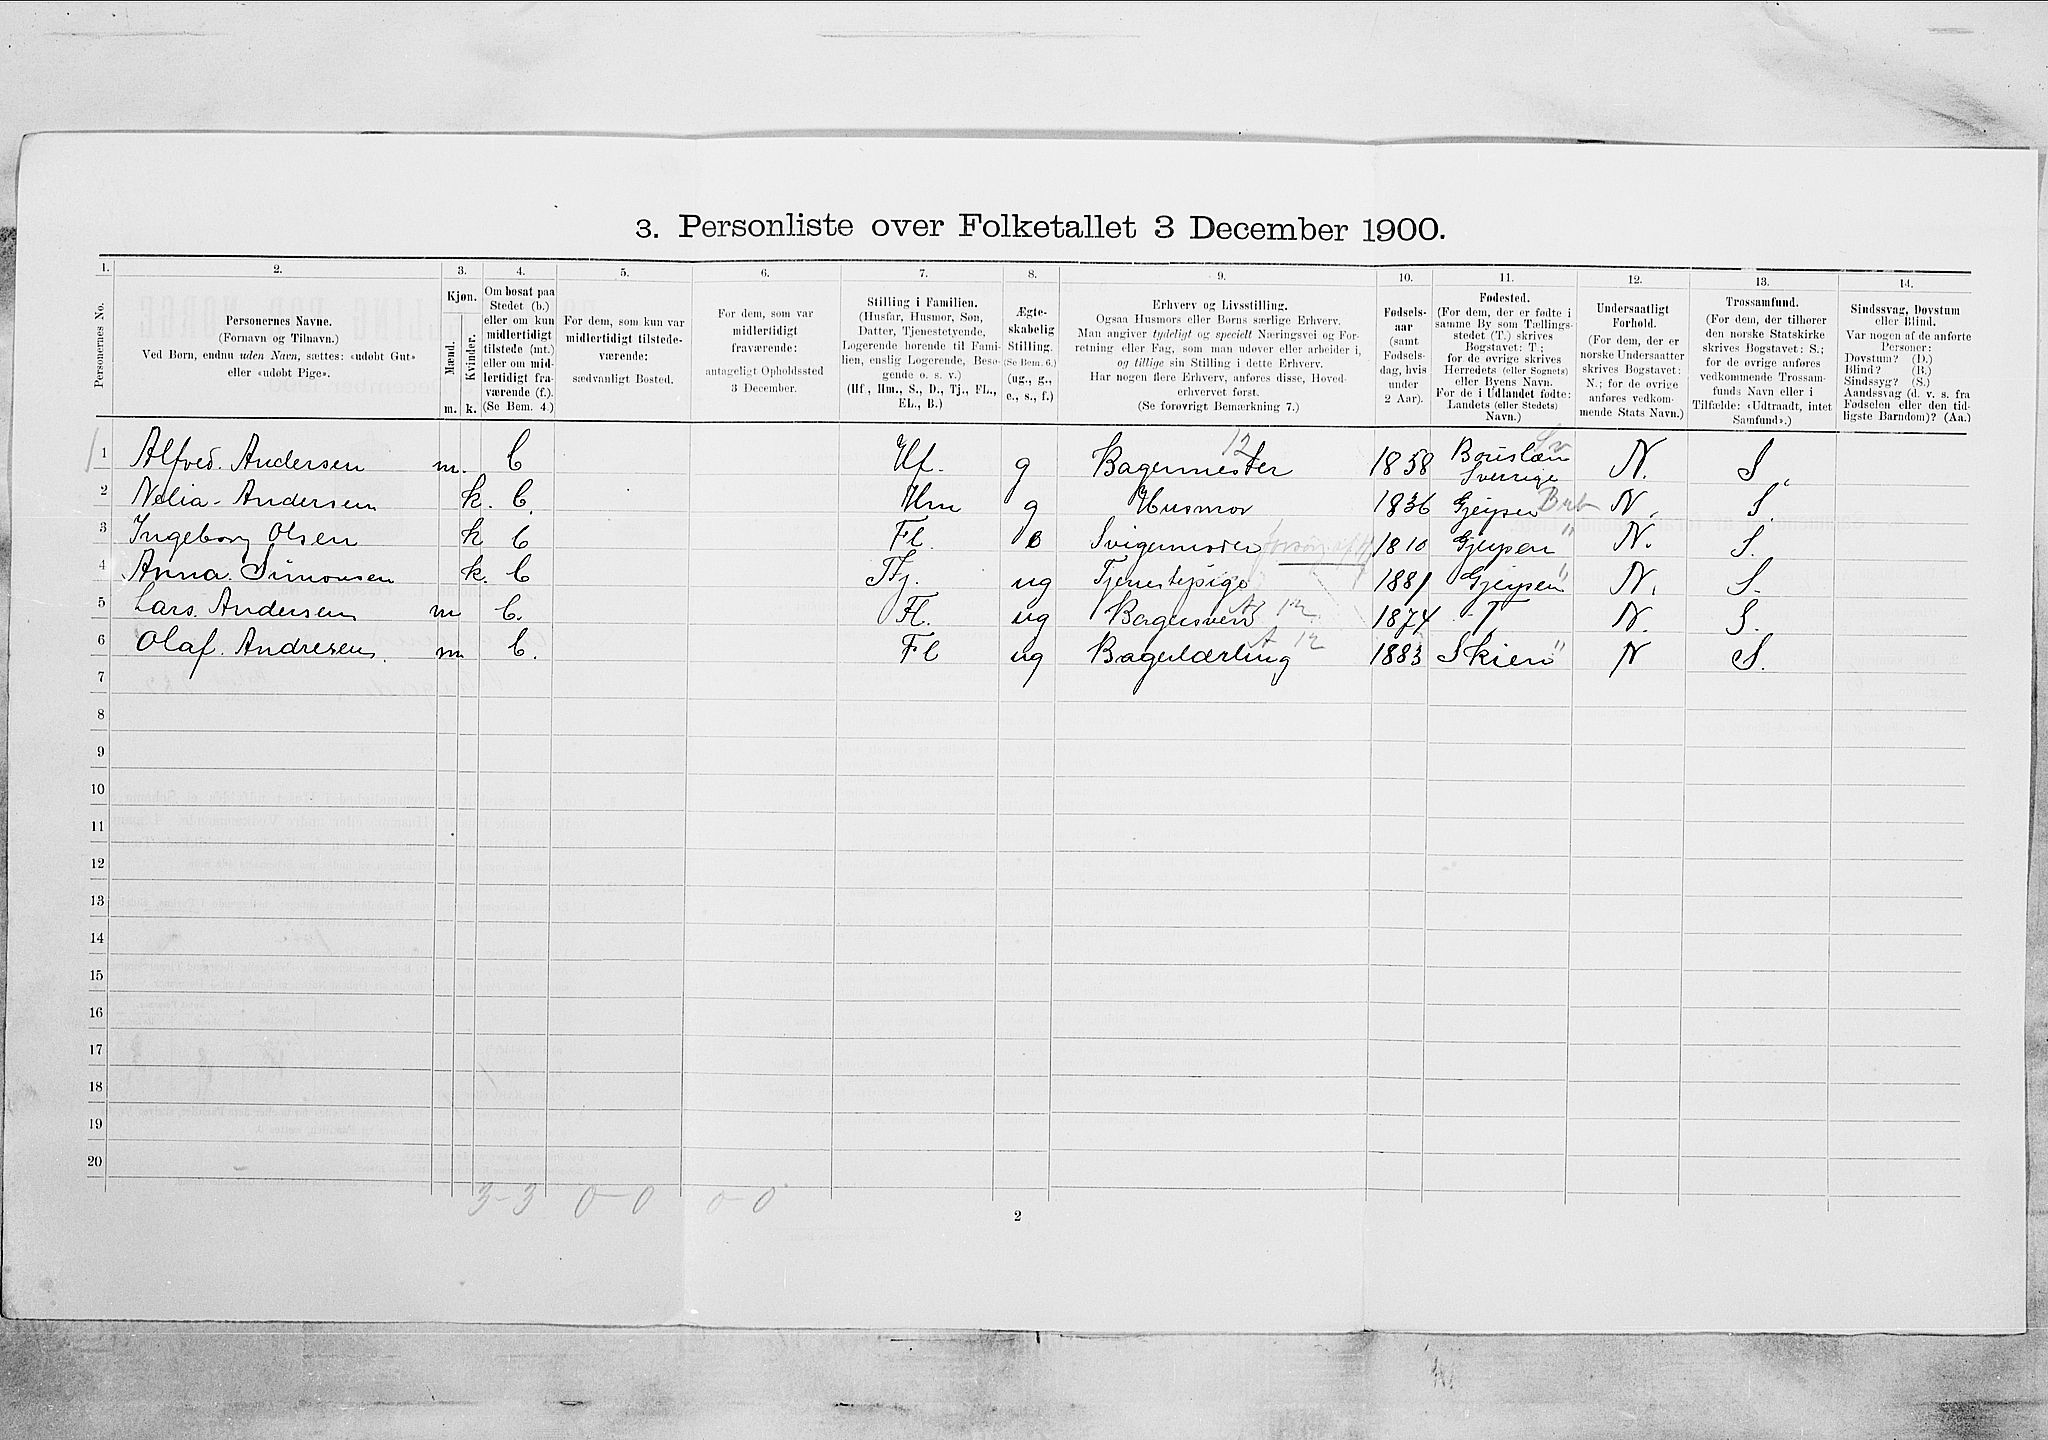 3. Personliste over Folketallet 3 December 1900.
1. 2. 3. 4. 5. 6. 7. 8. 9. 10. 11. 12. 13. 14.
Personernes No.
Personernes Navne.
(Fornavn og Tilnavn.)
Ved Børn, endnu uden Navn, sættes: «udøbt Gut»
eller «udøbt Pige».
Kjøn.
Mænd.
Kvinder.
m. k.
Om bosat paa
Stedet (b.)
eller om kun
midlertidigt
tilstede (mt.)
eller om mid-
lertidigt fra-
værende (f.).
(Se Bem. 4.)
For dem, som kun var
midlertidigt tilstede-
værende:
sædvanligt Bosted.
For dem, som var
midlertidigt
fraværende:
antageligt Opholdssted
3 December.
Stilling i Familien.
(Husfar, Husmor, Søn,
Datter, Tjenestetyende,
Logerende hørende til Fami-
lien, enslig Logerende, Besø-
gende o. s. v.)
(Hf., Hm., S., D., Tj., FL.,
EL., B.)
Ægte-
skabelig
Stilling.
(Se Bem. 6.)
(ug., g.,
e., s., f.)
Erhverv og Livsstilling.
Ogsaa Husmors eller Børns særlige Erhverv.
Man angiver tydeligt og specielt Næringsvei og For-
retning eller Fag, som man udøver eller arbeider i,
og tillige sin Stilling i dette Erhverv.
Har nogen flere Erhverv, anføres disse, Hoved-
erhvervet først.
(Se forøvrigt Bemærkning 7.)
Fødsels-
aar
(samt
Fødsels-
dag, hvis
under
2 Aar).
Fødested.
(For dem, der er fødte i
samme By som Tællings-
stedet (T.) skrives
Bogstavet: T;
for de øvrige skrives
Herredets (eller Sognets)
eller Byens Navn.
For de i Udlandet fødte:
Landets (eller Stedets)
Navn.)
Undersaatligt
Forhold.
(For dem, der er
norske Undersaatter
skrives Bogstavet:
N.; for de øvrige
anføres vedkom-
mende Stats Navn.)
Trossamfund.
(For dem, der tilhører
den norske Statskirke
skrives Bogstavet: S.;
for de øvrige anføres
vedkommende Trossam-
funds Navn eller i
Tilfælde: «Udtraadt, intet
Samfund».)
Sindssvag, Døvstum
eller Blind.
Var nogen af de anførte
Personer:
Døvstum? (D.)
Blind? (B.)
Sindssyg? (S.)
Aandssvag (d. v. s. fra
Fødselen eller den tid-
ligste Barndom)? (Aa.)
1 Alfred. Andersen m. b Hf. g Bagermester 12 1858 Sverige N. S.
2 Nelia Andersen k. b. Hm g Husmor 1836 Gjerpen Brb N. S.
3 Ingeborg Olsen k b Fl. e Svigermoder 1810 Gjerpen " N. S.
4 Anna. Simonsen k. b Tj. ug Tjenestepige 1881 Gjerpen " N. S.
5 Lars. Andersen m b. Fl. ug Bagersvend 12 1874 T N. S.
6 Olaf. Andresen. m b. Fl ug Bagerlærling A 12 1883 Skien " N S.
7
8
9
10
11
12
13
14
15
16
17
18
19
20
3-3 0-0 0-0
2